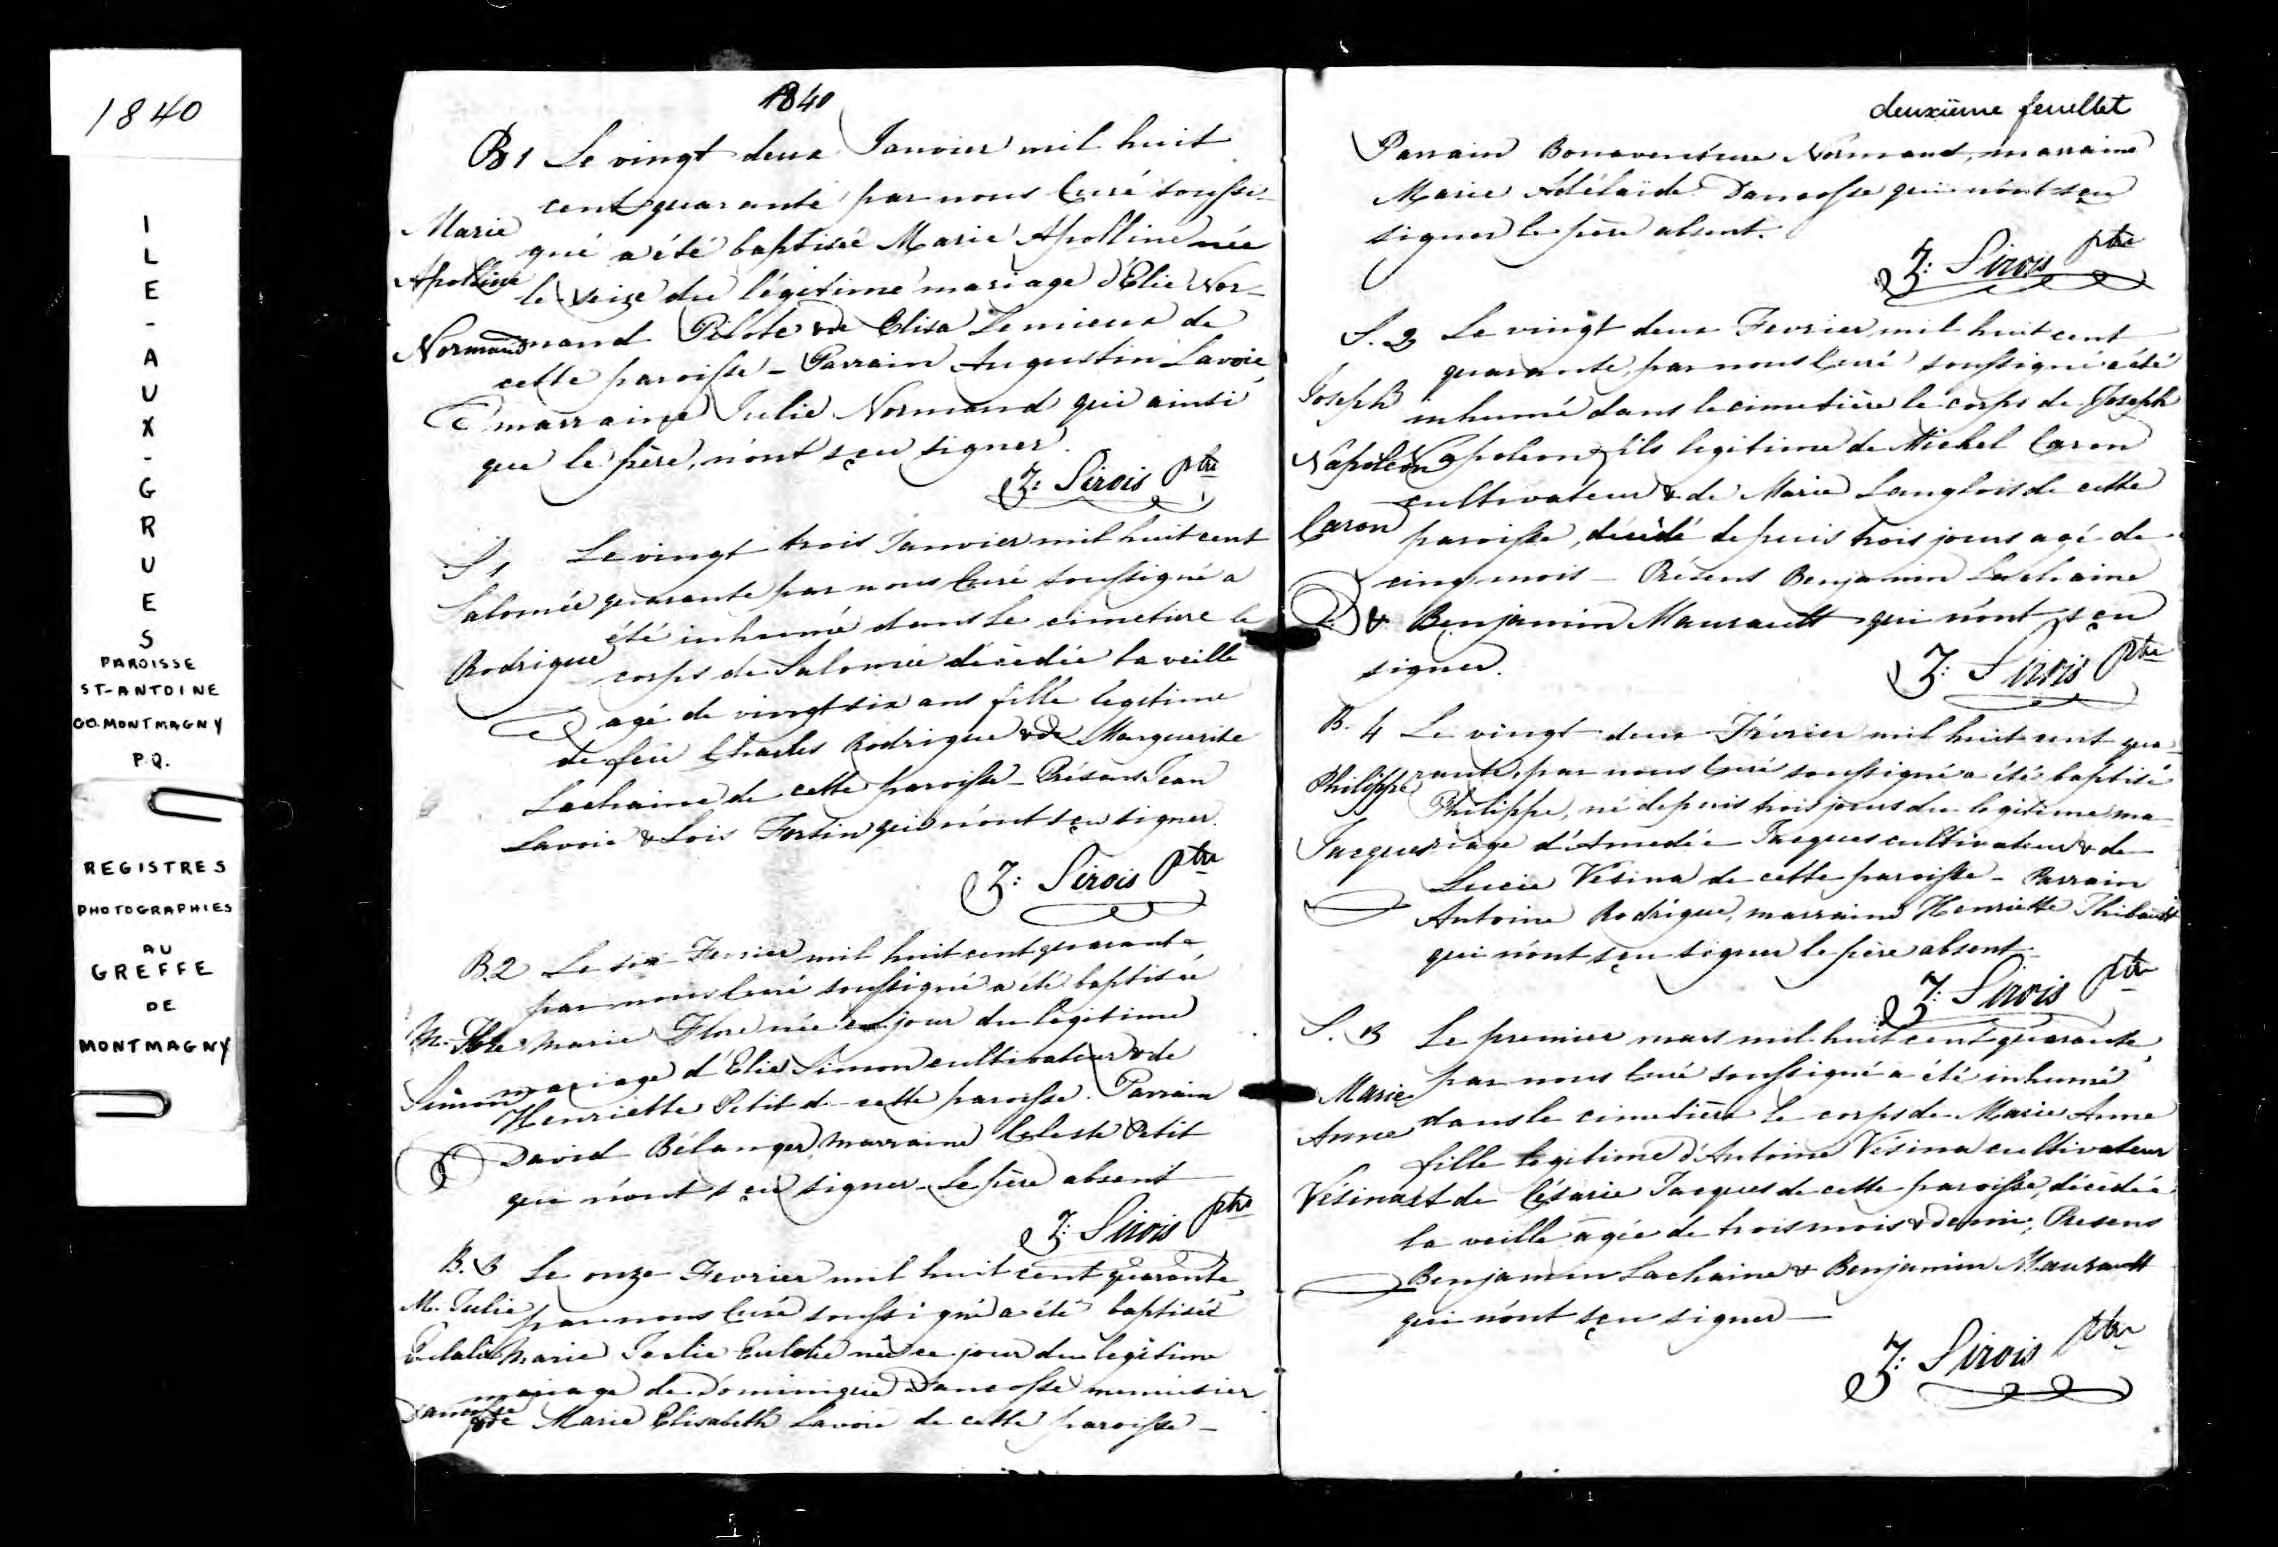 1840
ILE-AUX-GRUES
PAROISSE
ST-ANTOINE
CO. MONTMAGNY
P.Q.
REGISTRES
PHOTOGRAPHIES
AU
GREFFE
DE
MONTMAGNY
1840
B1 Le vingt deux Janvier mil huit
cent quarante par nous Curé soussi-
Marie
gné a été baptisée Marie Apolline née
Apolline
le seize du légitime mariage d'Elie Nor-
Normand
mand Pilote & de Elisa Lemieux de
cette paroisse - Parrain Augustin Lavoie
marraine Julie Normand qui ainsi
que le père, n'ont sçu signer.
Z: Sirois Ptre
S1 Le vingt trois Janvier mil huit cent
Salomée
quarante par nous Curé soussigné a
été inhumé dans le cimetière le
Rodrigue
corps de Salomée décédée la veille
agé de vingt six ans fille legitime
de feu Charles Rodrigue & de Marguerite
Lachaine de cette paroisse - Présens Jean
Lavoie & Lois Fortin qui n'ont sçu signer.
Z: Sirois Ptre
B.2 Le six Fevrier mil huit cent quarante
par nous Curé soussigné a été baptisée
M. Flore
Marie Flore née ce jour du légitime
Simon
mariage d'Elie Simon cultivateur & de
Henriette Petit de cette paroisse. Parrain
David Bélanger, marraine Celeste Petit
qui n'ont sçu signer - Le père absent
Z: Sirois Ptre
B.3 Le onze Fevrier mil huit cent quarante
M. Julie
par nous Curé soussigné a été baptisée
Eulalie
Marie Julie Eulalie née ce jour du legitime
mariage de Dominique Dancosse menuisier
Dancosse
& de Marie Elisabeth Lavoie de cette paroisse -
deuxième feuillet
Parrain Bonaventure Normand, marraine
Marie Adélaïde Dancosse qui n'ont sçu
signer le père absent.
Z: Sirois Ptre
S. 2 Le vingt deux Fevrier mil huit cent
quarante, par nous Curé soussigné a été
Joseph
inhumé dans le cimetière le corps de Joseph
Napoléon
Napoléon fils legitime de Michel Caron
cultivateur & de Marie Langlois de cette
Caron
paroisse, décédé depuis trois jours agé de
cinq mois - Présens Benjamin Lachaine
& Benjamin Maurault qui n'ont sçu
signer.
Z: Sirois Ptre
B. 4 Le vingt deux Février mil huit cent qua-
Philippe
rante, par nous Curé soussigné a été baptisé
Philippe, né depuis trois jours du legitime ma-
Jacques
riage d'Amedée Jacques cultivateur & de
Lucie Vésina de cette paroisse - Parrain
Antoine Rodrigue, marraine Henriette Thibault
qui n'ont sçu signer le père absent.
Z: Sirois Ptre
S. 3 Le premier mars mil huit cent quarante
par nous Curé soussigné a été inhumé
Marie
Anne
dans le cimetière le corps de Marie Anne
fille legitime d'Antoine Vésina cultivateur
Vésina
et de Césarie Jacques de cette paroisse, décédée
la veille agée de trois mois & demie, Presens
Benjamin Lachaine & Benjamin Maurault
qui n'ont sçu signer -
Z: Sirois Ptre